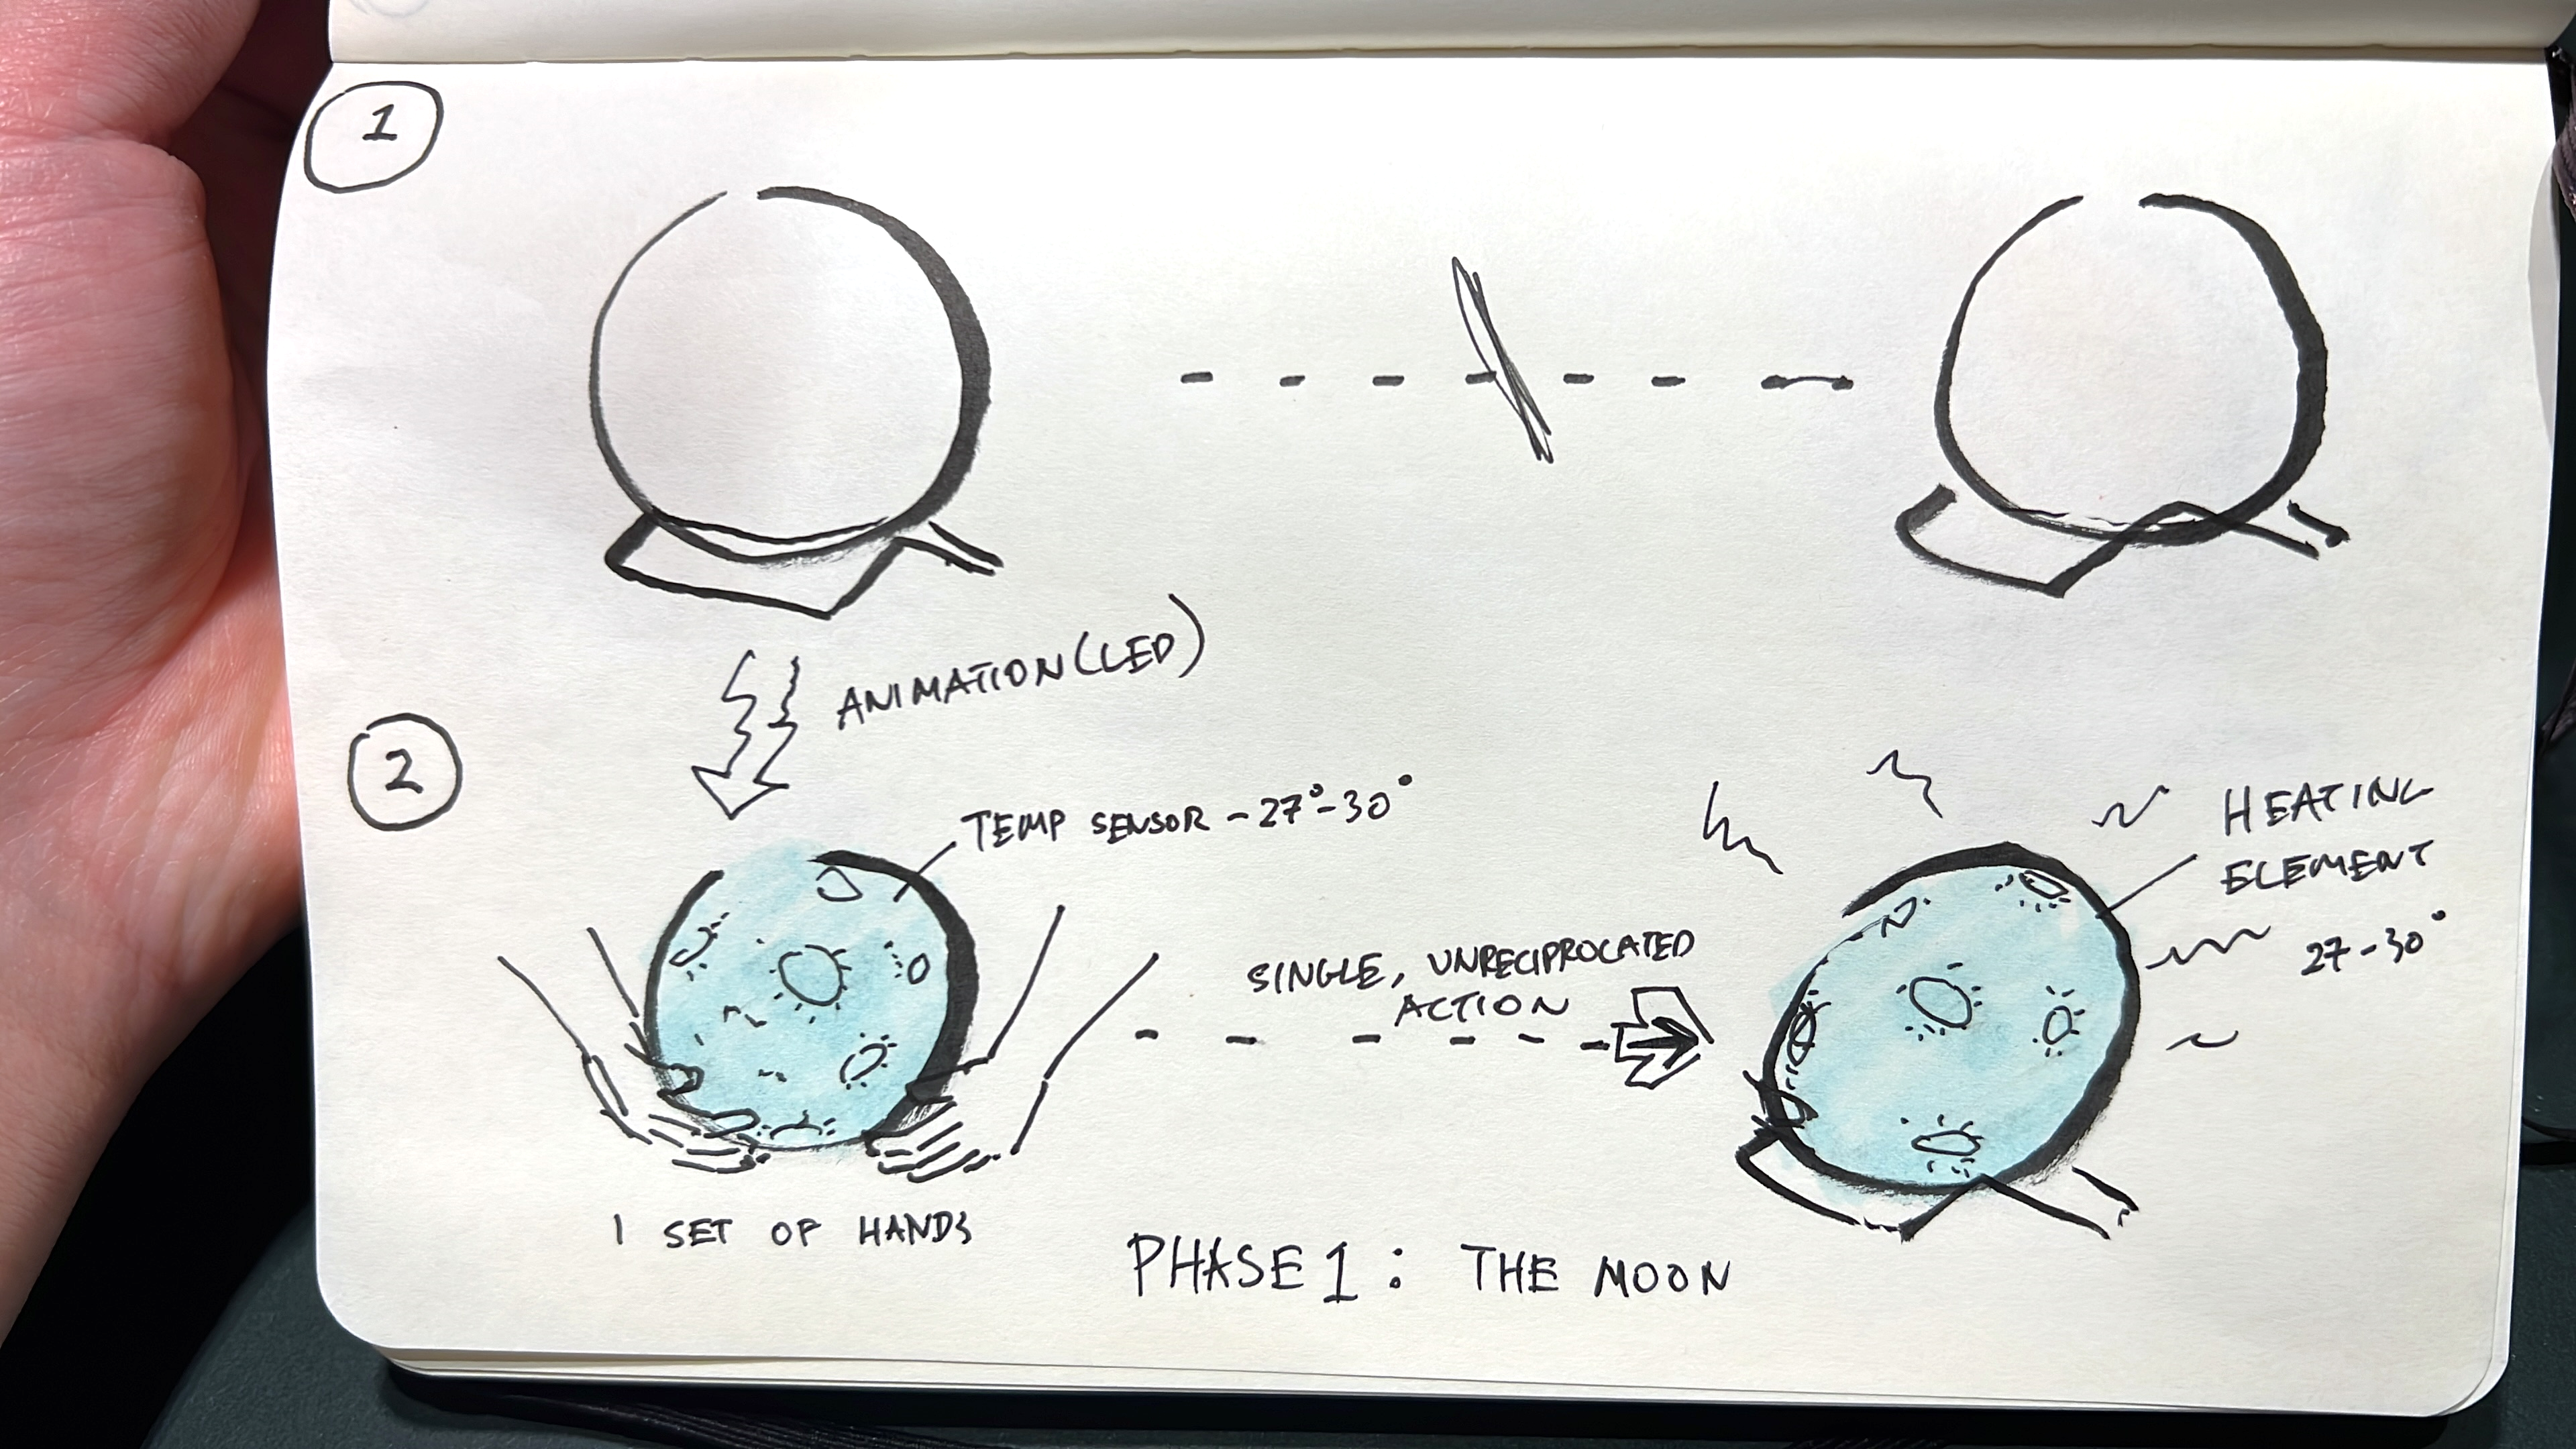 1
ANIMATION (LED)
2
TEMP SENSOR - 27°-30°
HEATING
ELEMENT
27-30°
SINGLE, UNRECIPROCATED
ACTION
1 SET OF HANDS
PHASE 1: THE MOON